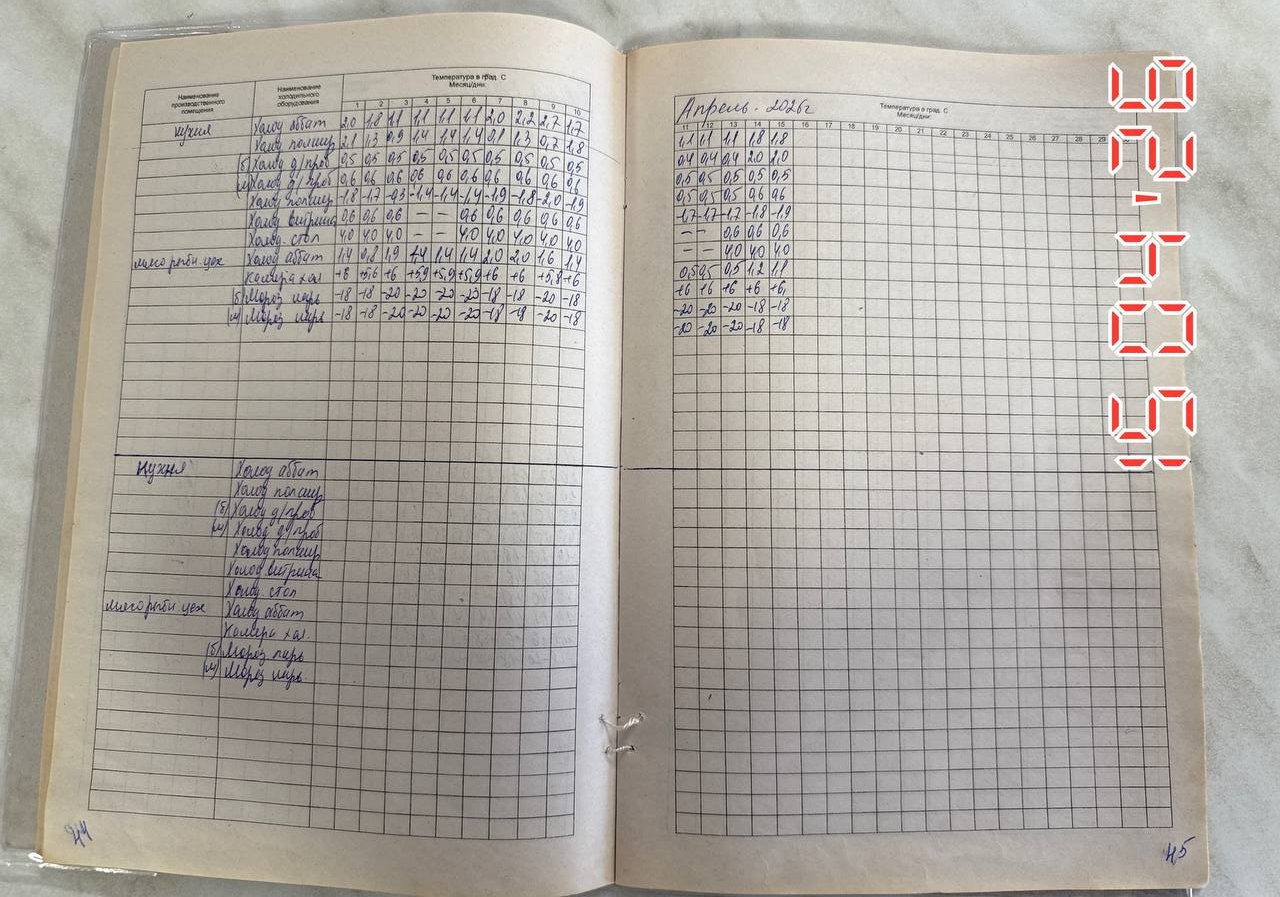 Наименование производственного помещения
Наименование холодильного оборудования
Температура в град. С
Месяц/дни:
1 2 3 4 5 6 7 8 9 10
кухня Холод аббат 2,0 1,8 1,1 1,1 1,1 1,1 2,0 2,2 2,7 1,7
Холод полаир 2,1 1,3 0,9 1,4 1,4 1,4 0,1 1,3 0,7 1,8
(б) Холод д/проб 0,5 0,5 0,5 0,5 0,5 0,5 0,5 0,5 0,5 0,5
(м) Холод д/проб 0,6 0,6 0,6 0,6 0,6 0,6 0,6 0,6 0,6 0,6
Холод полаир -1,8 -1,7 -0,3 -1,4 -1,4 -1,4 -1,9 -1,8 -2,0 -1,9
Холод витрина 0,6 0,6 0,6 – – 0,6 0,6 0,6 0,6 0,6
Холод. стол 4,0 4,0 4,0 – – 4,0 4,0 4,0 4,0 4,0
мясо рыбн. цех Холод аббат 1,4 0,8 1,9 1,4 1,4 1,4 2,0 2,0 1,6 1,4
Камера хол +6 +5,6 +6 +5,9 +5,9 +5,9 +6 +6 +5,8 +6
(б) Мороз ларь -18 -18 -20 -20 -20 -20 -18 -18 -20 -18
(м) Мороз ларь -18 -18 -20 -20 -20 -20 -18 -18 -20 -18
кухня Холод аббат
Холод полаир
(б) Холод д/проб
(м) Холод д/проб
Холод полаир
Холод витрина
Холод. стол
мясо рыбн. цех Холод аббат
Камера хол.
(б) Мороз ларь
(м) Мороз ларь
44
Апрель. 2026г
Температура в град. С
Месяц/дни:
11 12 13 14 15 16 17 18 19 20 21 22 23 24 25 26 27 28 29 30
1,1 1,1 1,1 1,8 1,8
0,4 0,4 0,4 2,0 2,0
0,5 0,5 0,5 0,5 0,5
0,5 0,5 0,5 0,6 0,6
-1,7 -1,7 -1,7 -1,8 -1,9
– – 0,6 0,6 0,6
– – 4,0 4,0 4,0
0,5 0,5 0,5 1,2 1,1
+6 +6 +6 +6 +6
-20 -20 -20 -18 -18
-20 -20 -20 -18 -18
45